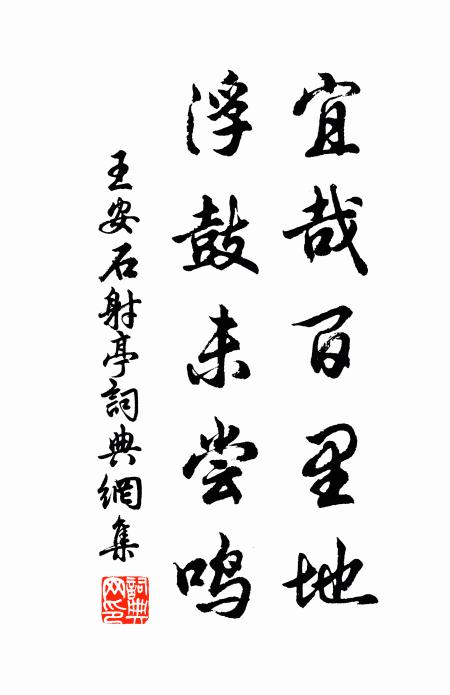 宜哉百里地
浮鼓未尝鸣
王安石射亭詞典網集
詞典网印